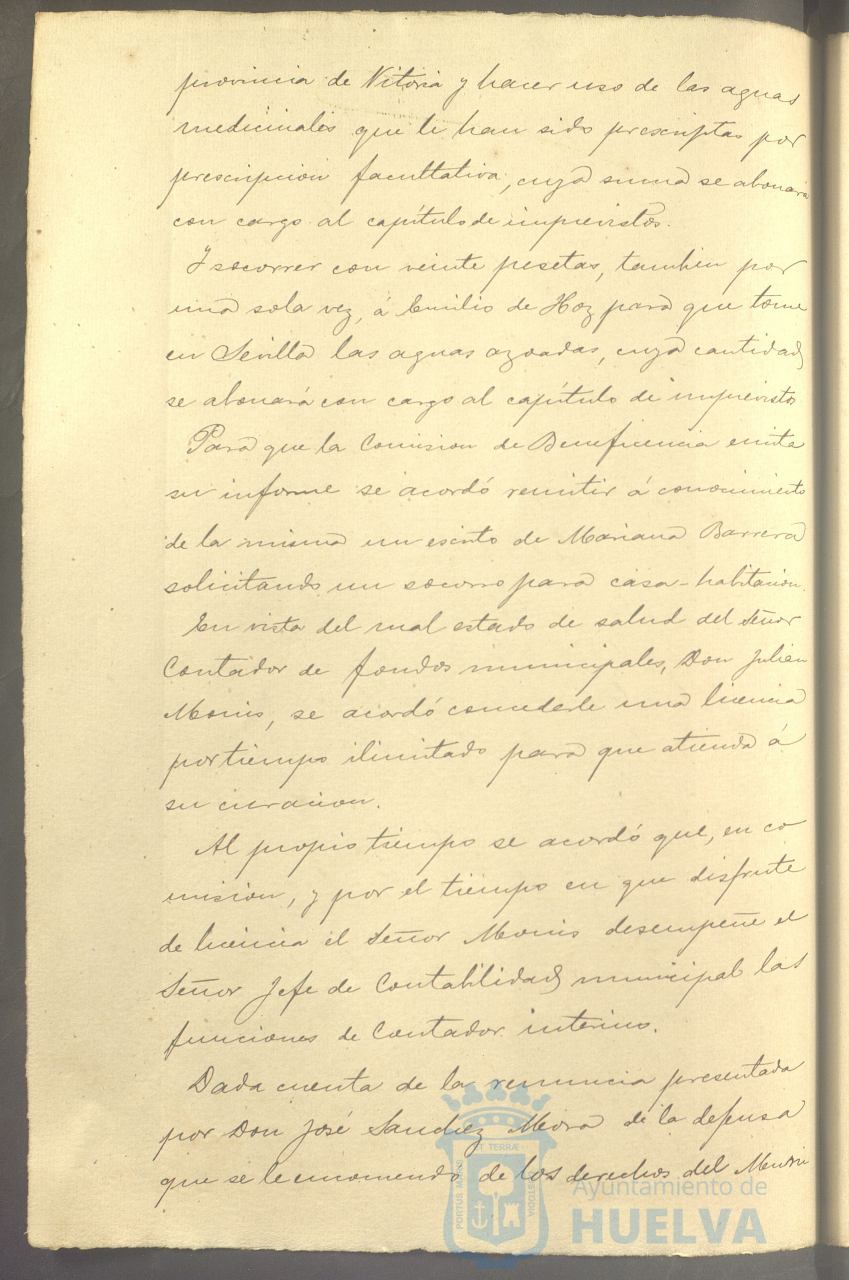 provincia de Vitoria y hacer uso de las aguas
medicinales que le han sido prescriptas por
prescripcion facultativa, cuya suma se abonará
con cargo al capítulo de imprevistos.
Y socorrer con veinte pesetas, tambien por
una sola vez, á Emilio de Hoz para que tome
en Sevilla las aguas azoadas, cuya cantidad
se abonará con cargo al capítulo de imprevistos
Para que la Comision de Beneficencia emita
su informe se acordó remitir á conocimiento
de la misma un escrito de Mariana Barrera
solicitando un socorro para casa-habitacion.
En vista del mal estado de salud del Señor
Contador de fondos municipales, Don Julian
Monis, se acordó concederle una licencia
por tiempo ilimitado para que atienda á
su curacion.
Al propio tiempo se acordó que, en co
mision, y por el tiempo en que disfrute
de licencia el Señor Monis desempeñe el
Señor Jefe de Contabilidad municipal las
funciones de Contador interino.
Dada cuenta de la renuncia presentada
por Don José Sanchez Mora de la defensa
que se le encomendó de los derechos del Muni
PORTUS MARIS
ET TERRÆ
CUSTODIA
Ayuntamiento de
HUELVA